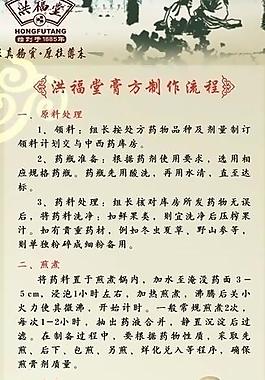 洪福堂
HONGFUTANG
始创于1885年
洪福堂膏方制作流程
一、原料处理
1、领料:组长按处方药物品种及剂量制订
领料计划交与中西药库房。
2、药瓶准备:根据药剂使用要求,选用相
应规格药瓶。药瓶先用酸洗,再用水清,直至达
标。
3、药料处理:组长核对库房所发药物无误
后,将药料洗净;如鲜果类,则宜洗净后压榨果
汁。如有贵重药材,例如冬虫夏草,野山参等,
则单独粉碎成细粉备用。
二、煎煮
将药料置于煎煮锅内,加水至淹没药面3-
5cm,浸泡1小时左右,加热煎煮,沸腾后关小
火力使真微沸,开始计时。一般常规煎煮2次,
每次1-2小时,抽出药液合并,静置沉淀后过
滤。在制备过程中,要根据药物性质,采取先
煎、后下、包煎、另煎、烊化兑入等程序,确保
煎膏剂质量。